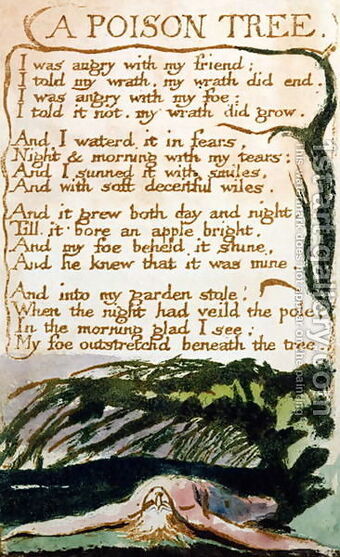 A POISON TREE.
I was angry with my friend;
I told my wrath, my wrath did end.
I was angry with my foe:
I told it not, my wrath did grow.
And I waterd it in fears,
Night & morning with my tears:
And I sunned it with smiles,
And with soft deceitful wiles.
And it grew both day and night,
Till it bore an apple bright.
And my foe beheld it shine,
And he knew that it was mine
And into my garden stole,
When the night had veild the pole;
In the morning glad I see,
My foe outstretchd beneath the tree